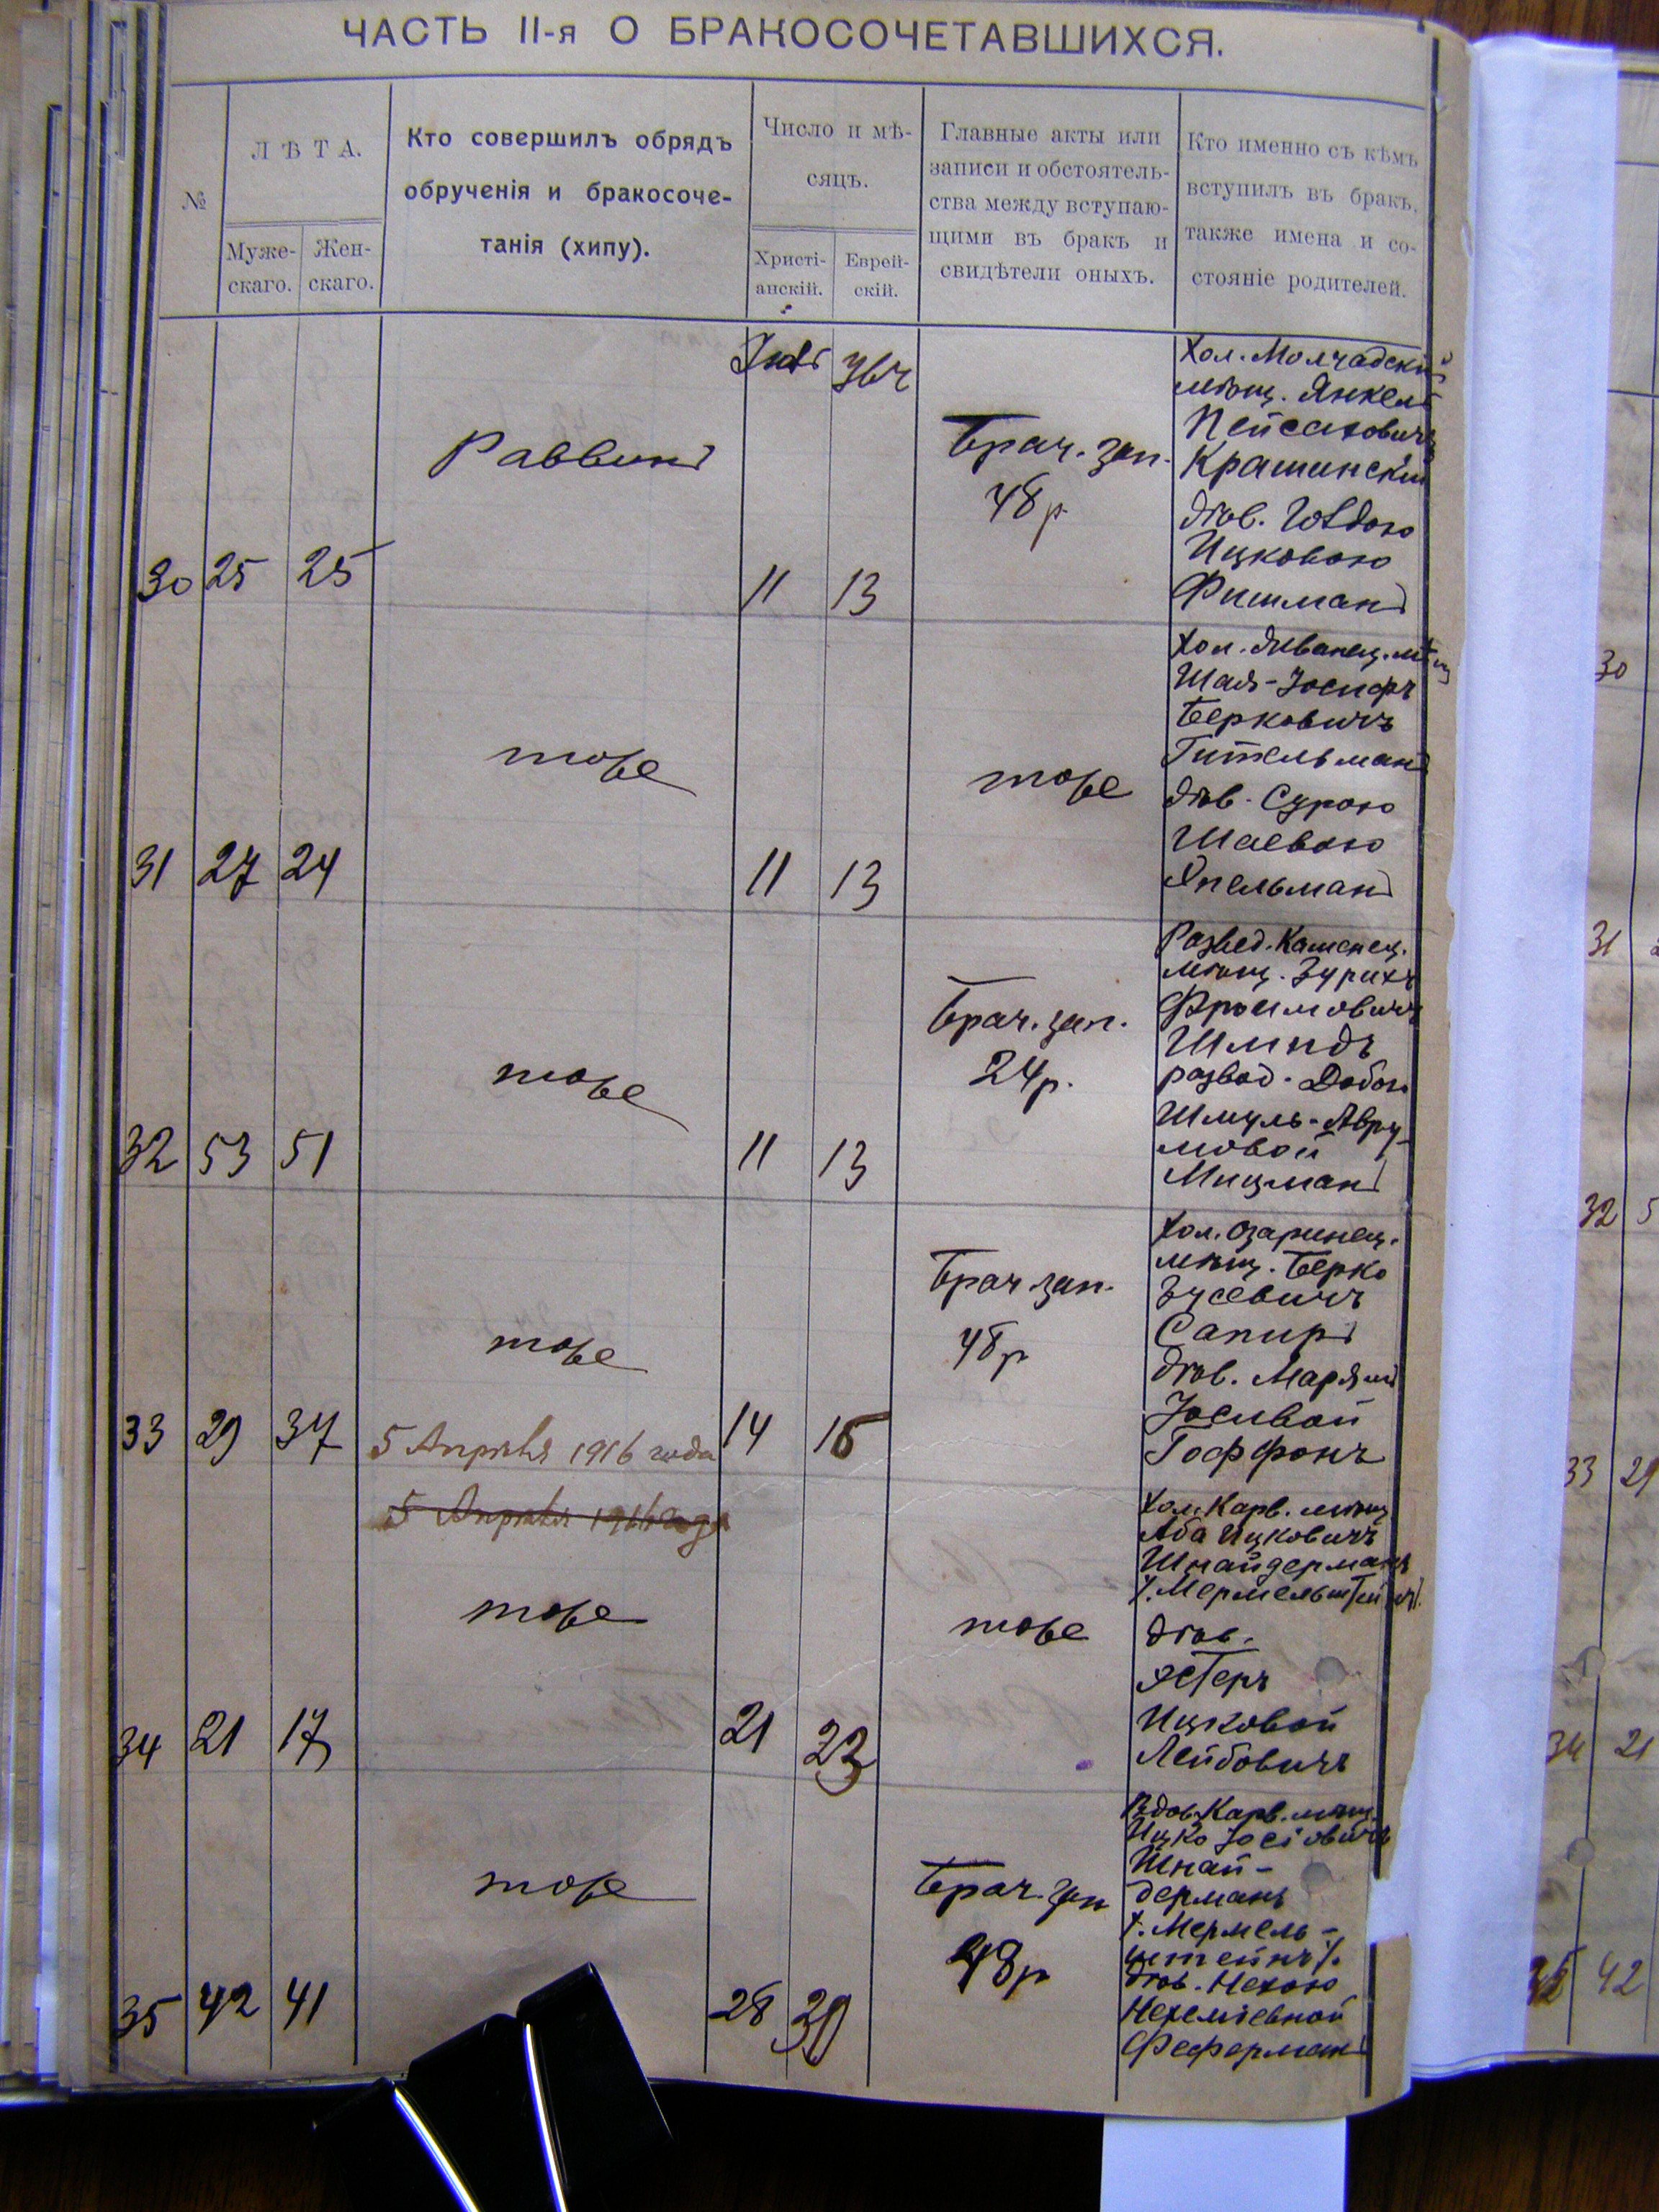 ЧАСТЬ II-я О БРАКОСОЧЕТАВШИХСЯ.
№
ЛѢТА.
Муже-
скаго.
Жен-
скаго.
Кто совершилъ обрядъ
обрученія и бракосоче-
танія (хипу).
Число и мѣ-
сяцъ.
Христі-
анскій.
Еврей-
скій.
Главные акты или
записи и обстоятель-
ства между вступаю-
щими въ бракъ и
свидѣтели оныхъ.
Кто именно съ кѣмъ
вступилъ въ бракъ,
также имена и со-
стояніе родителей.
30 25 25
Раввинъ
11 13
Брач. зап.
48 р
Хол. Молчадскій
мѣщ. Янкель
Пейсаховичъ
Крашинскій
дѣв.
Ицковою
Фишманъ
31 27 24
тоже
11 13
тоже
Хол. мѣщ
Шая-Іосифъ
Берковичъ
Гительманъ
дѣв. Сурою
Шаевою
Япельманъ
32 53 51
тоже
11 13
Брач. зап.
24 р.
Развед. Каменец.
мѣщ. Зурихъ
Фроимовичъ
Шмидъ
развод. Добою
Шмуль-Авру-
мовой
Мицманъ
33 29 37
тоже
5 Апрѣля 1916 года
14 16
Брач зап.
48 р
Хол. Озаринец.
мѣщ. Берко
Зусевичъ
Сапиръ
дѣв. Марямъ
Іосивой
Гоффонъ
5 Апрѣля 1916 года
34 21 17
тоже
21 23
тоже
Хол. Карв. мѣщ
Аба Ицковичъ
Шнайдерманъ
/. Мермельштейнъ/.
дѣв.
Эстеръ
Ицковой
Лейбовичъ
35 42 41
тоже
28 30
Брач. зап
48 р
Вдов. Карв. мѣщ.
Ицко Іосіовичъ
Шнай-
дерманъ
/. Мермель-
штейнъ/.
дѣв. Нехою
Нехеміевной
Феферманъ
30
31
32 5
33 29
34 21
35 42